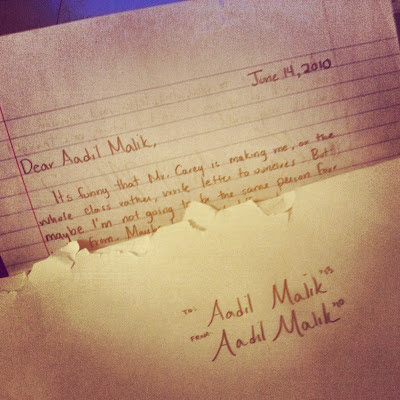 June 14, 2010
Dear Aadil Malik,
It's funny that Mr. Carey is making me, or the
whole class rather, write letter to ourselves. But
maybe I'm not going to be the same person five
from. Maybe
TO: Aadil Malik '15
FROM: Aadil Malik '10